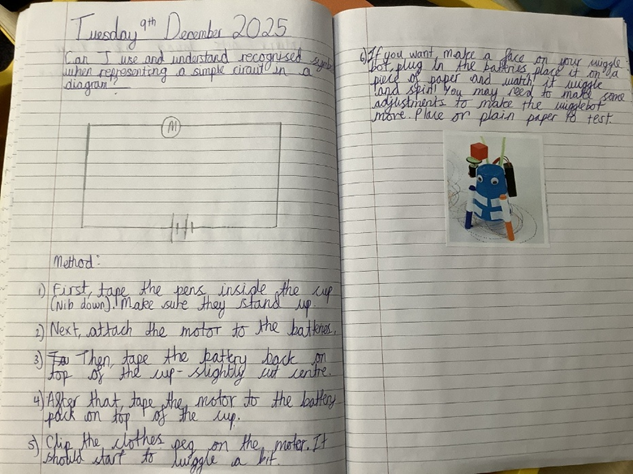 Tuesday 9th December 2025
Can I use and understand recognised
when representing a simple circuit in a
diagram?
M
Method:
1) First, tape the pens inside the cup
(Nib down). Make sure they stand up.
2) Next, attach the motor to the batteries.
3) Then, tape the battery back on
top of the cup - slightly off centre.
4) After that, tape the motor to the battery
pack on top of the cup.
5) Clip the clothes peg on the motor. It
should start to wiggle a bit.
6) If you want, make a face on your wiggle
bot, plug in the batteries place it on a
piece of paper and watch it wiggle
and spin! You may need to make some
adjustments to make the wigglebot
move. Place on plain paper to test.